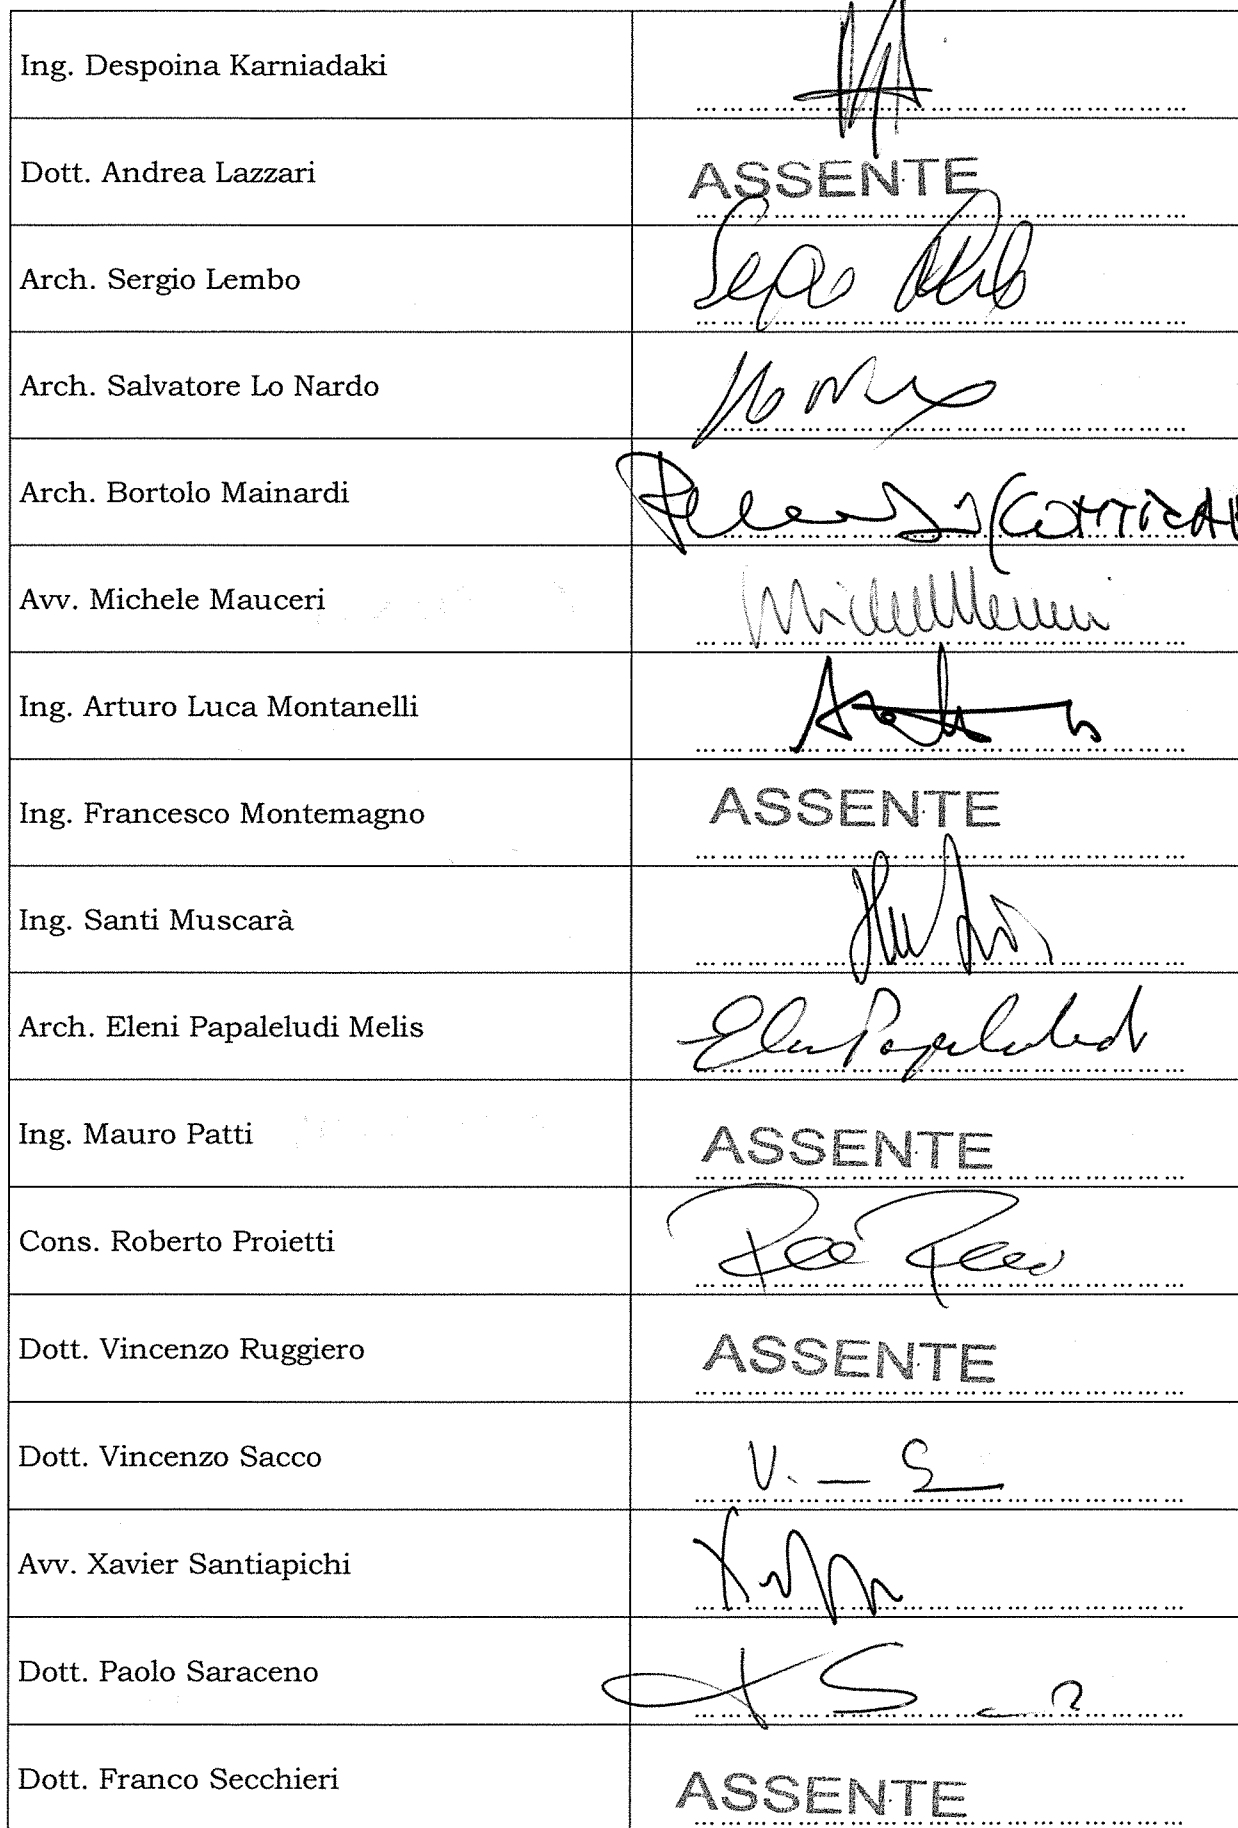 Ing. Despoina Karniadaki
Dott. Andrea Lazzari ASSENTE
Arch. Sergio Lembo
Arch. Salvatore Lo Nardo
Arch. Bortolo Mainardi
Avv. Michele Mauceri
Ing. Arturo Luca Montanelli
Ing. Francesco Montemagno ASSENTE
Ing. Santi Muscarà
Arch. Eleni Papaleludi Melis
Ing. Mauro Patti ASSENTE
Cons. Roberto Proietti
Dott. Vincenzo Ruggiero ASSENTE
Dott. Vincenzo Sacco
Avv. Xavier Santiapichi
Dott. Paolo Saraceno
Dott. Franco Secchieri ASSENTE